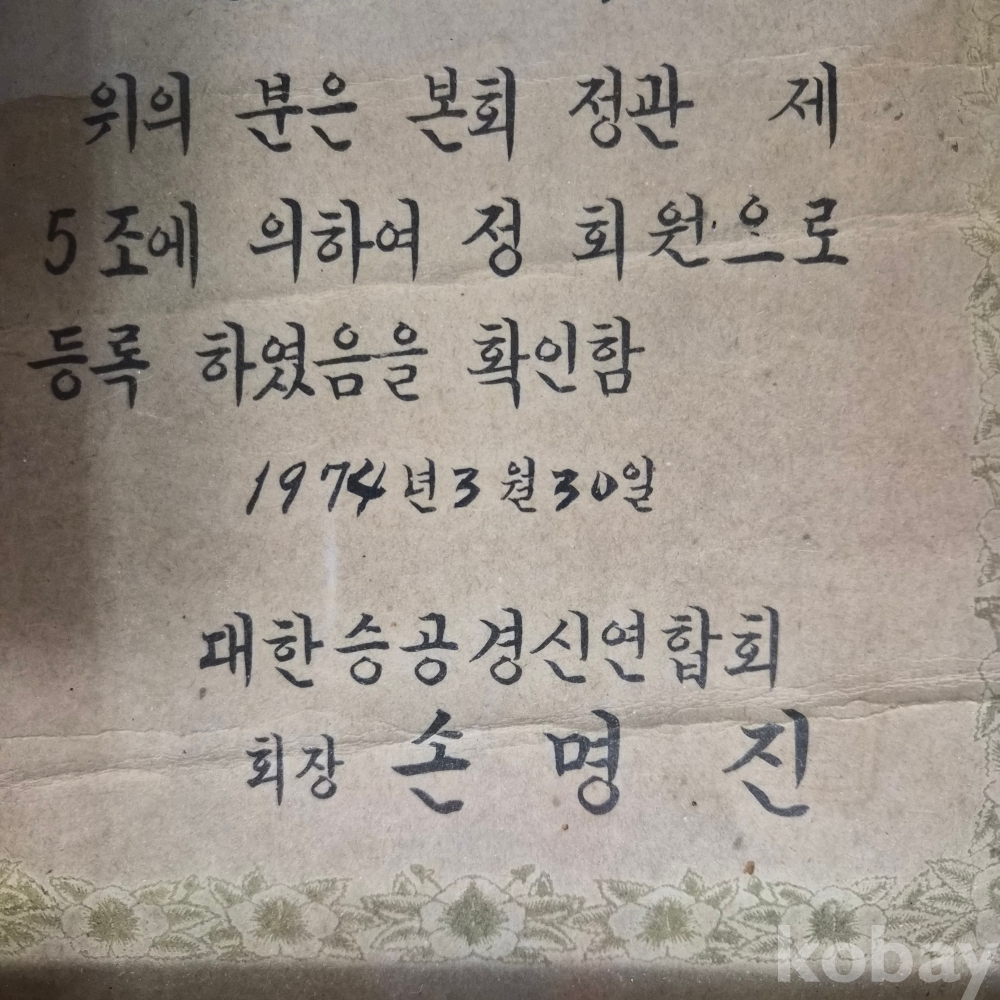 위의 분은 본회 정관 제
5조에 의하여 정 회원으로
등록 하였음을 확인함
1974년 3월 30일
대한승공경신연합회
회장 손 명 진
kobay